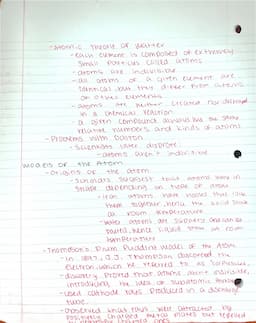 - Atomic Theory of Matter
- each element is composed of extremely
small particles called atoms
- atoms are indivisible
- all atoms of a given element are
identical, but they differ from atoms
of other elements
- atoms are neither created nor destroyed
in a chemical reaction
- a given compound always has the same
relative numbers and kinds of atoms
- Problems with Dalton
- Scientists later disprove:
- atoms aren't indivisible
Models of the Atom
- Origins of the atom
- Scientists suggest that atoms were in
shape depending on type of atom
- Iron atoms have hooks that lock
them together, hence the solid state
at room temperature
- Water atoms are slippery and can be
poured, hence liquid state at room
temperature
- Thomson's Plum Pudding Model of the Atom
- in 1897, J.J. Thompson discovered the
electron, which he referred to as "corpuscle"
- discovery proved that atoms aren't indivisible,
introducing the idea of subatomic
- used cathode rays produced in a discharge
tube
- observed that rays were attracted by
positively charged metal plates but repelled
by negatively charged ones